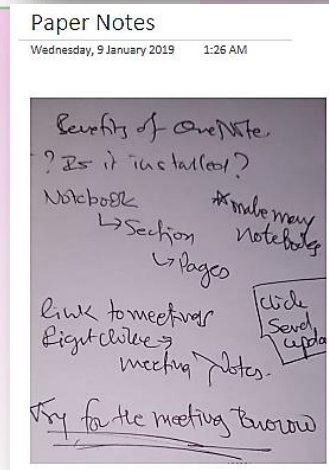 Paper Notes
Wednesday, 9 January 2019 1:26 AM
Benefits of OneNote
? Is it installed?
Notebook
↳ Section
↳ Pages
* make many
Notebooks
link to meetings
Right click →
meeting Notes.
click
Send
Try for the meeting Tomorow